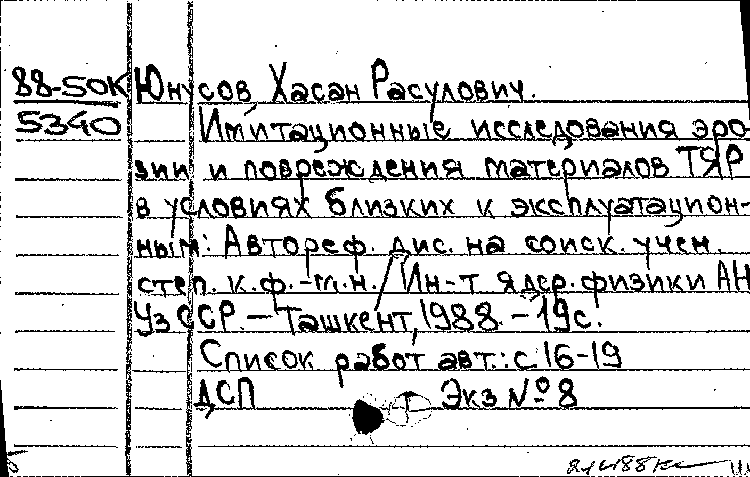 88-50К Юнусов Хасан Расулович.
5340 Имитационные исследования эро
зии и повреждения материалов ТЯР
в условиях близких к эксплуатацион-
ным: Автореф. дис. на соиск. учен.
степ. к.ф.-т.н. / Ин-т ядер. физики АН
УзССР. – Ташкент, 1988. – 19с.
Список работ авт.: с.16-19
ДСП Экз №8